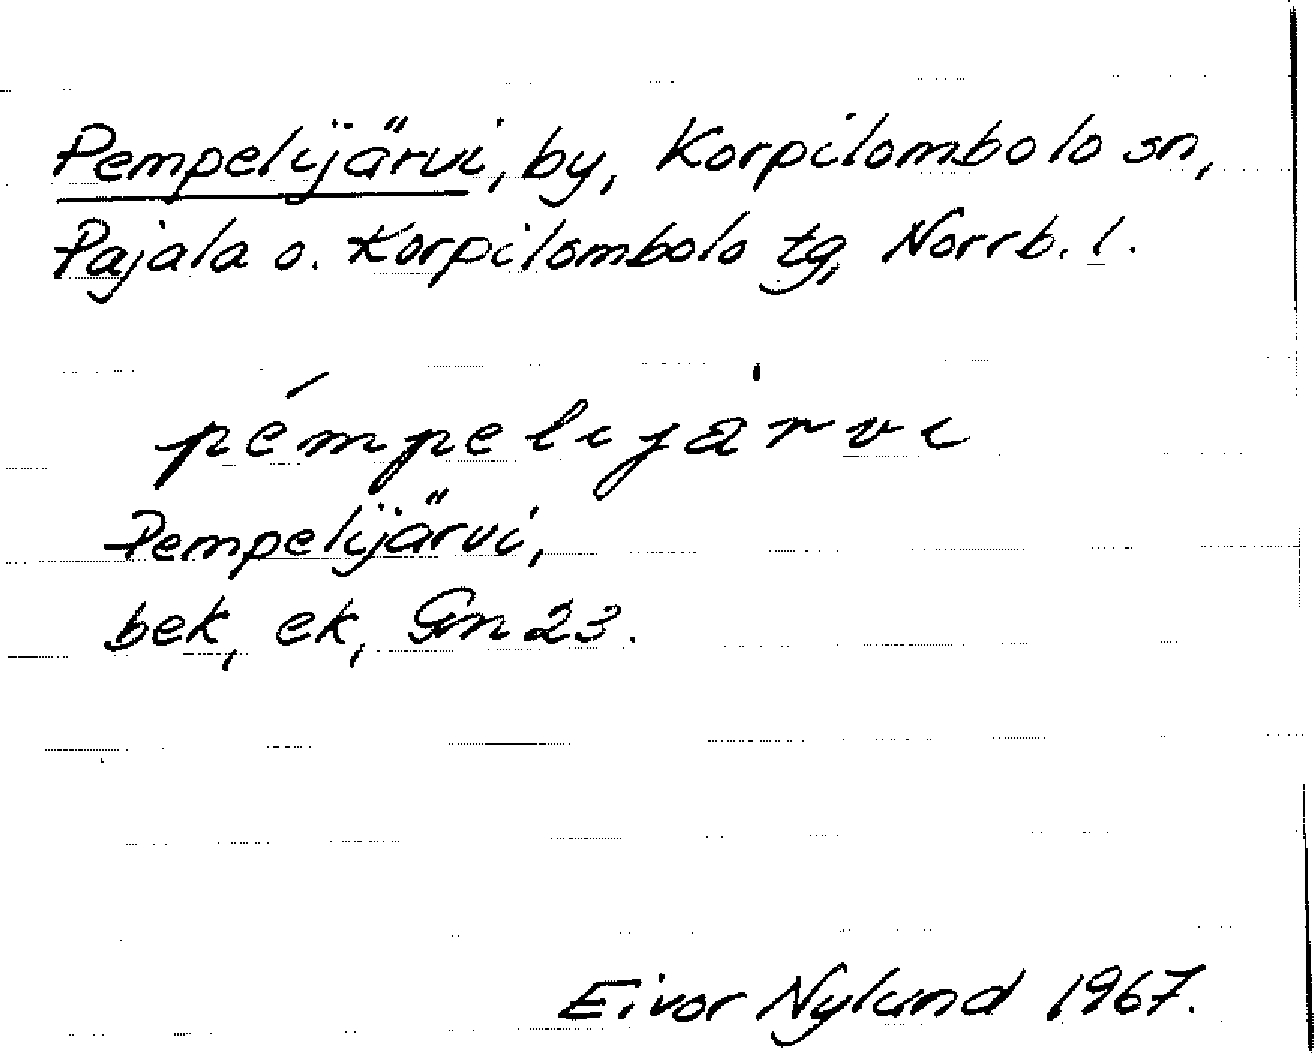 Pempelijärvi, by, Korpilombolo sn,
Pajala o. Korpilombolo tg, Norrb. l.
pémpelijȧrvi
Pempelijärvi,
bek, ek, Gn 23.
Eivor Nylund 1967.